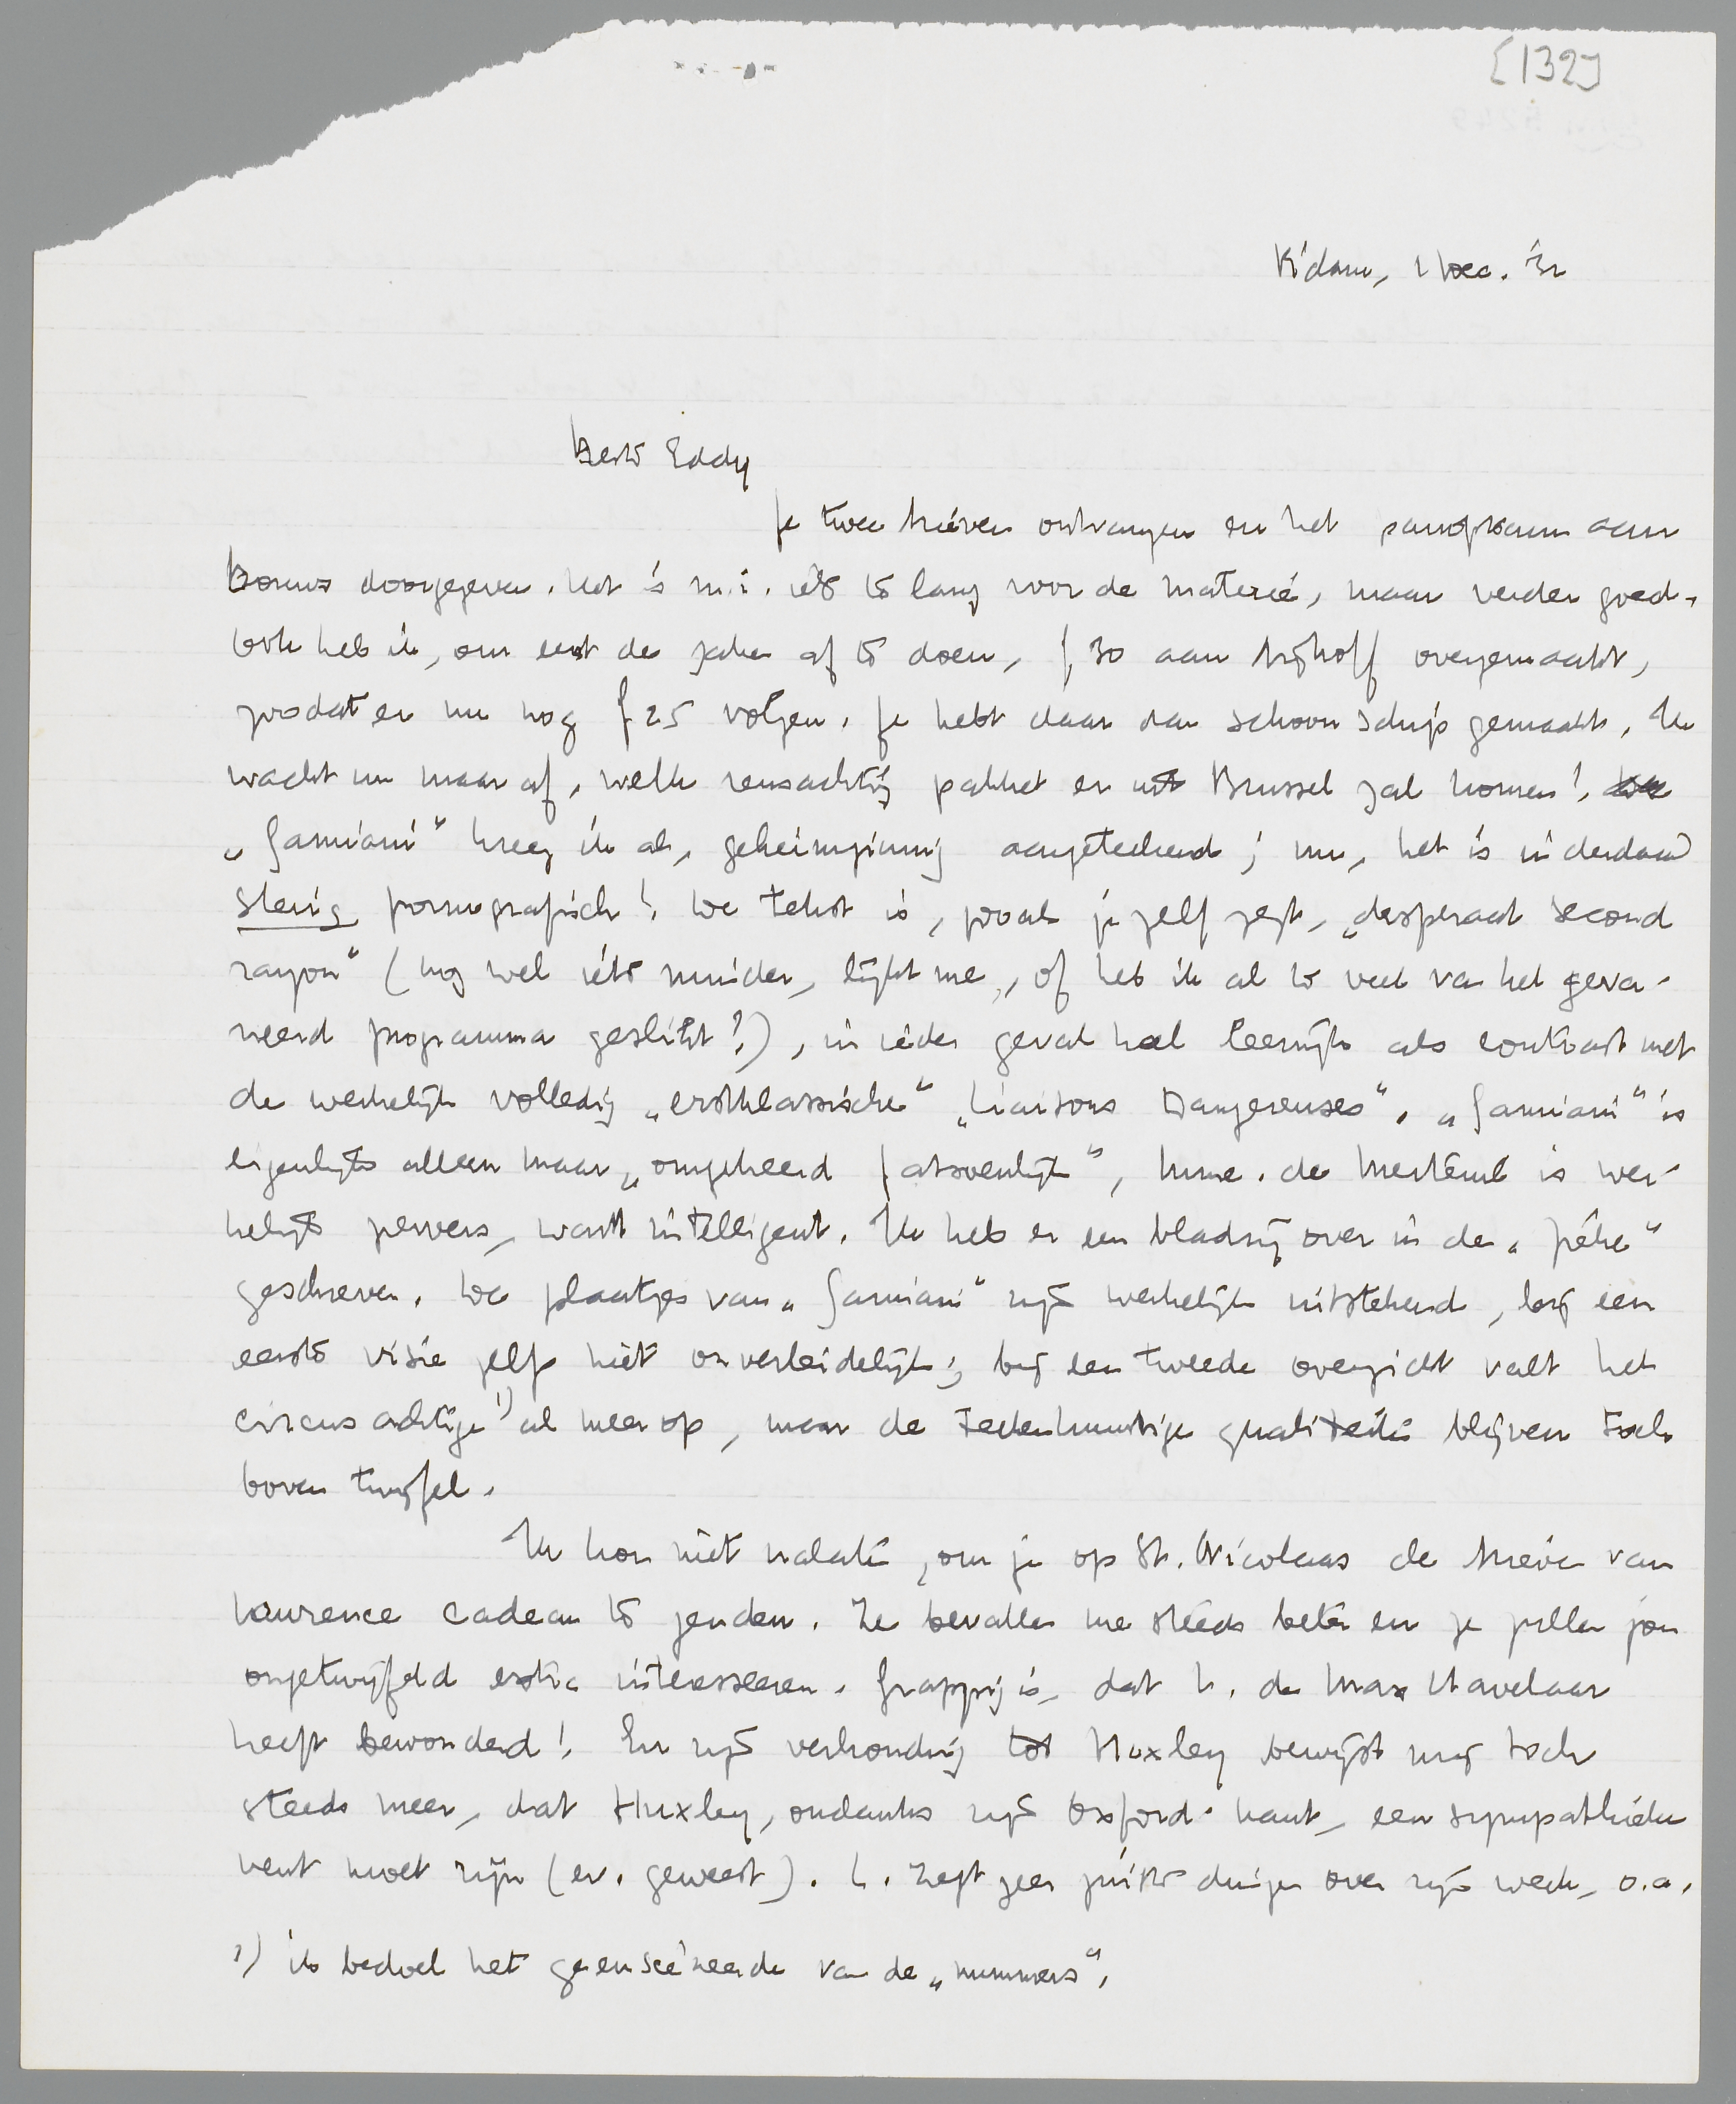 [132]
R'dam, 1 Dec. '32
Beste Eddy
Je twee brieven ontvangen en het panopticum aan
Bouws doorgegeven. Het is m.i. iets te lang voor de materie, maar verder goed.
Ook heb ik, om eerst de zaken af te doen, f 30 aan Nijhoff overgemaakt,
zoodat er nu nog f 25 volgen. Je hebt daar dan schoon schip gemaakt. Ik
wacht nu maar af, welk reusachtig pakket er uit Brussel zal komen!
„Gamiani" kreeg ik als geheimzinnig aangeteekend; nu, het is inderdaad
stevig pornografisch! De tekst is, zooals je zelf zegt, „desperaat second
rayon" (nog wel iets minder, lijkt me, of heb ik al te veel van het geva-
rieerd programma geslikt?), in ieder geval heel leerrijk als contrast met
de werkelijk volledig „erstklassische" „Liaisons Dangereuses". „Gamiani" is
eigenlijk alleen maar „omgekeerd fatsoenlijk", Mme. de Merteuil is wer-
kelijk pervers, want intelligent. Ik heb er een bladzij over in de „
geschreven. De plaatjes van „Gamiani" zijn werkelijk uitstekend, bij een
eerste visie zelfs niet onverleidelijk; bij een tweede overzicht valt het
circusachtige 1) al meer op, maar de teekenkunstige qualiteiten blijven toch
boven twijfel.
Ik kon niet nalaten, om je op St. Nicolaas de brieven van
Lawrence cadeau te zenden. Ze bevallen me steeds beter en ze zullen jou
ongetwijfeld extra interesseeren. Grappig is, dat L. de Max Havelaar
heeft bewonderd! En zijn verhouding tot Huxley bewijst mij toch
steeds meer, dat Huxley, ondanks zijn Oxford-kant, een sympathieke
vent moet zijn (ev. geweest). L. zegt zeer juiste dingen over zijn werk, o.a.
1) ik bedoel het geënsceneerde van de „nummers".